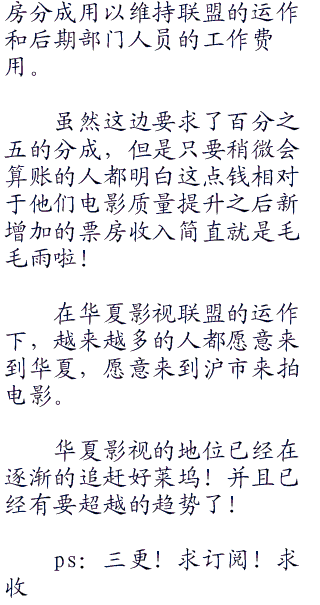 房分成用以维持联盟的运作
和后期部门人员的工作费
用。
虽然这边要求了百分之
五的分成，但是只要稍微会
算账的人都明白这点钱相对
于他们电影质量提升之后新
增加的票房收入简直就是毛
毛雨啦！
在华夏影视联盟的运作
下，越来越多的人都愿意来
到华夏，愿意来到沪市来拍
电影。
华夏影视的地位已经在
逐渐的追赶好莱坞！并且已
经有要超越的趋势了！
ps：三更！求订阅！求
收